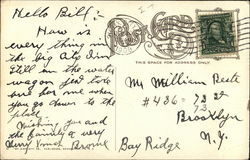 Hello Bill:-
How is
every thing in
the big city. Im
Still on the water
wagon you bet
one for me when
you go down to the
place.
Wishing you and
the family a very
Merry
Post Card
THIS SPACE FOR ADDRESS ONLY
Mr William
#436 = 72 st
Brooklyn
Bay Ridge N.Y.